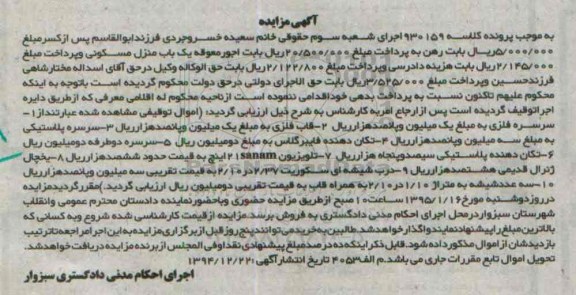 آگهی مزایده
به موجب پرونده کلاسه ۹۳۰۱۵۹ اجرای شعبه سوم حقوقی خانم سعیده خسروجردی فرزند ابوالقاسم پس از کسر مبلغ
۵/۰۰۰/۰۰۰ ریال بابت رهن به پرداخت مبلغ ۲۰/۵۰۰/۰۰۰ ریال بابت اجور معوقه یک باب منزل مسکونی و پرداخت مبلغ
۲/۱۴۵/۰۰۰ ریال بابت هزینه دادرسی و پرداخت مبلغ ۲/۱۲۲/۸۰۰ ریال بابت حق الوکاله وکیل در حق آقای اسداله مختارشاهی
فرزند حسین و پرداخت مبلغ ۳/۵۲۵/۰۰۰ ریال بابت حق الاجرای دولتی در حق دولت محکوم گردیده است باتوجه به اینکه
محکوم علیهم تاکنون نسبت به پرداخت بدهی خود اقدامی ننموده است از ناحیه محکوم له اقلامی معرفی که از طریق دایره
اجرا توقیف گردیده است پس از ارجاع امر به کارشناس به شرح ذیل ارزیابی گردید: (اموال توقیفی مشاهده شده عبارتند از ۱-
سرسره فلزی به مبلغ یک میلیون و پانصد هزار ریال ۲- قاب فلزی به مبلغ یک میلیون و پانصد هزار ریال ۳- سرسره پلاستیکی
به مبلغ سه میلیون و پانصد هزار ریال ۴- تکان دهنده فایبرگلاس به مبلغ دو میلیون ریال ۵- سرسره دو طرفه دو میلیون ریال
۶- تکان دهنده پلاستیکی سیصد و پنجاه هزار ریال ۷- تلویزیون sanam ۲۱ اینچ به قیمت حدود ششصد هزار ریال ۸- یخچال
ژنرال قدیمی هشتصد هزار ریال ۹- درب شیشه ای سکوریت ۲/۳۷ در ۲/۱۰ به قیمت تقریبی سه میلیون و پانصد هزار ریال
۱۰- سه عدد شیشه به متراژ ۱/۱۰ در ۲/۱۰ به همراه قاب به قیمت تقریبی دو میلیون ریال ارزیابی گردید.) مقرر گردید مزایده
در روز دوشنبه مورخ ۱۳۹۵/۱/۱۶ ساعت ۱۰ صبح از طریق مزایده حضوری و باحضور نماینده دادستان محترم عمومی و انقلاب
شهرستان سبزوار در محل اجرای احکام مدنی دادگستری به فروش برسد. مزایده از قیمت کارشناسی شده شروع و به کسانی که
بالاترین مبلغ را پیشنهاد نمایند واگذار خواهد شد. طالبین به خرید می توانند پنج روز قبل از برگزاری مزایده به این اجرا مراجعه تا ترتیب
بازدیدشان از اموال مذکور داده شود. قابل ذکر اینکه ده درصد مبلغ پیشنهادی نقدا و فی المجلس از برنده مزایده دریافت خواهد شد.
تحویل اموال تابع مقررات جاری می باشد. م الف ۴۰۵۳ تاریخ انتشار آگهی: ۱۳۹۴/۱۲/۲۲
اجرای احکام مدنی دادگستری سبزوار